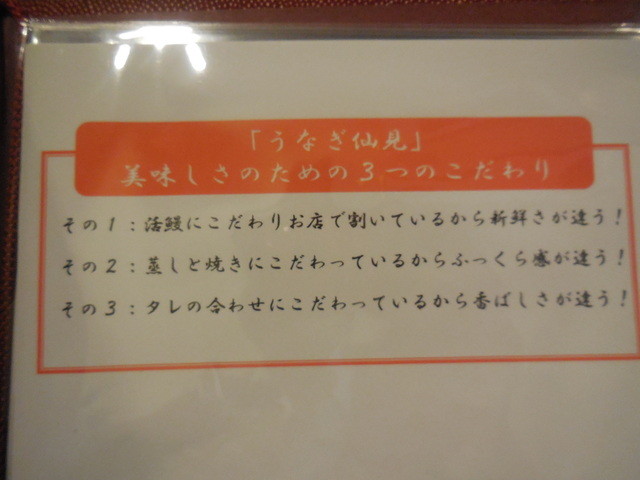 「うなぎ仙見」
美味しさのための3つのこだわり
その1:活鰻にこだわりお店で割いているから新鮮さが違う!
その2:蒸しと焼きにこだわっているからふっくら感が違う!
その3:タレの合わせにこだわっているから香ばしさが違う!